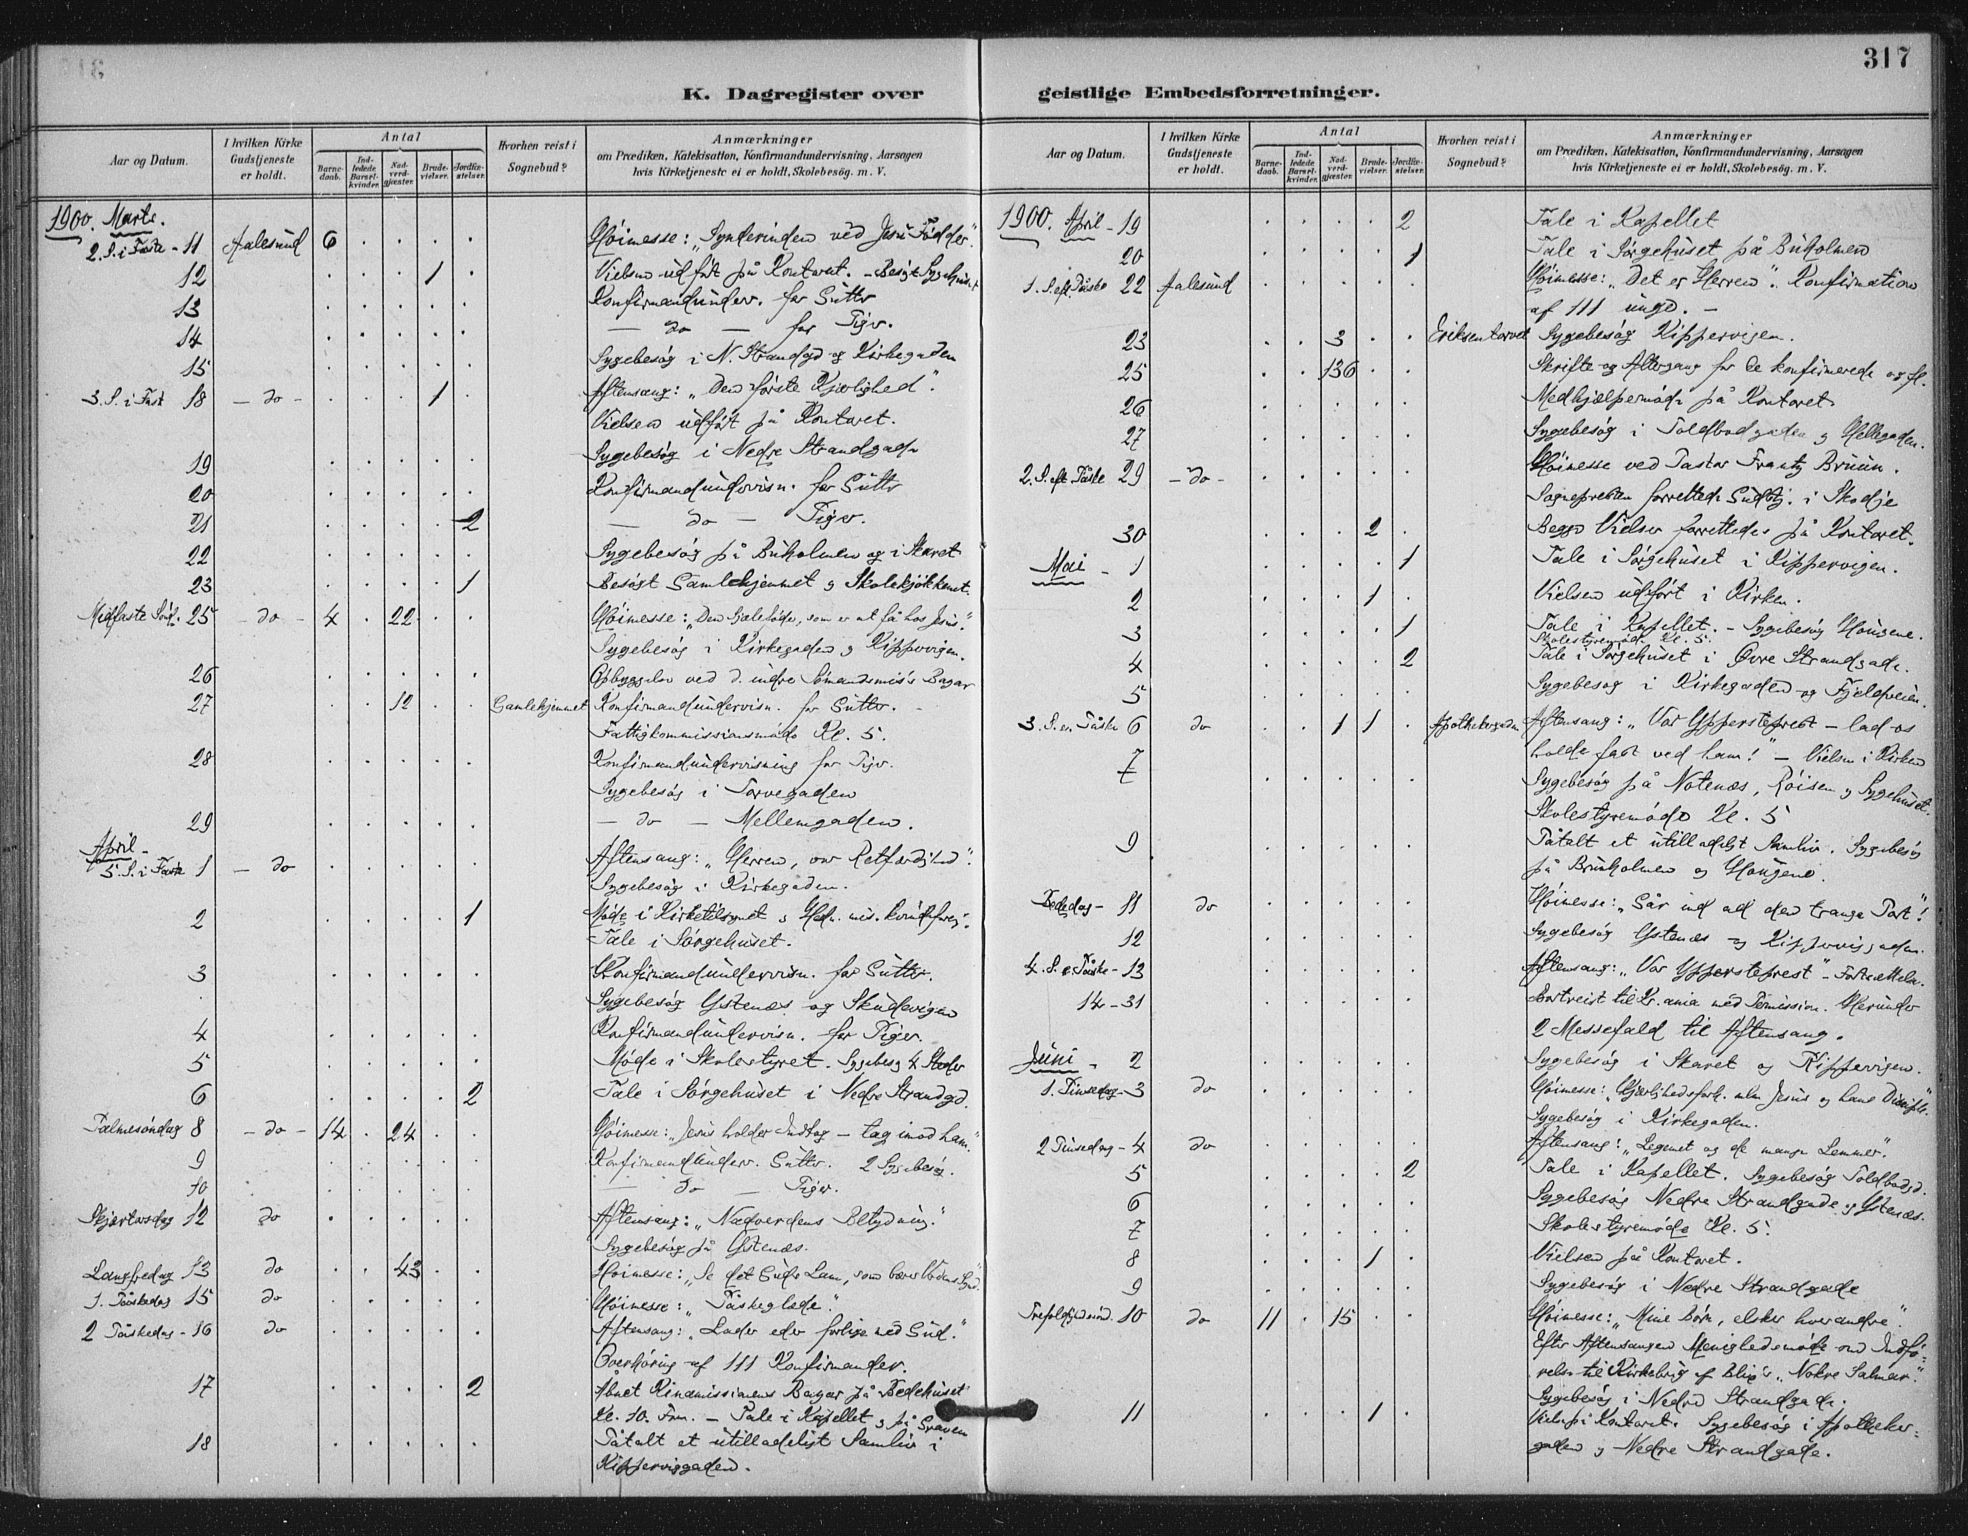 317
K. Dagregister over
Aar og Datum.
I hvilken Kirke Gudstjeneste er holdt.
Antal
Barne-daab.
Ind-ledede Barsel-kvinder.
Nad-verd-gjæster.
Brude-vielser.
Jordfæ-stelser.
Hvorhen reist i Sognebud?
Anmærkninger
om Prædiken, Katekisation, Konfirmandundervisning, Aarsagen
hvis Kirketjeneste ei er holdt, Skolebesøg. m. V.
1900. Marts.
2. S. i Faste - 11 Aalesund 6 . . . . Høimesse: "Synderinden ved Jesu Fødder".
12 . . . 1 . Vielsen udført på Kontoret. - Besøgt Sygehuset
13 . . . . . Konfirmandunderv. for Gutter
14 . . . . . — do — for Piger.
15 . . . . . Sygebesøg i N. Strandgd og Kirkegaden
3. S. i Fast 18 - do - . . . 1 . Aftensang: "Den første Kjærlighed".
Vielsen udført på Kontoret.
19 . . . . . Sygebesøg i Nedre Strandgade
20 . . . . . Konfirmandundervisn. for Gutter
21 . . . . 2 — do — Piger.
22 . . . . . Sygebesøg på Buholmen og i Skaret
23 . . . . 1 Besøgt Gamlehjemmet og Skolekjøkkenet.
Midfaste Sönd. 25 - do - 4 . 22 . . Høimesse: "Den Sjæleføde, som er at få hos Jesus".
Sygebesøg i Kirkegaden og Kippervigen.
26 . . . . . Opbyggelse ved d. indre Sømandsmis's Bazar
27 . . 12 . . Gamlehjemmet Konfirmandundervisn. for Gutter.
Fattigkommissionsmøde Kl. 5.
28 . . . . . Konfirmandundervisning for Piger.
Sygebesøg i Torvegaden
29 . . . . . — do — Mellemgaden.
April -
5. S. i Faste 1 - do . . . . . Aftensang: "Herren, vor Retfærdighed".
Sygebesøg i Kirkegaden.
2 . . . . 1 Møde i Kirketilsynet og Hedn. mis. kvindeforeg.
Tale i Sørgehuset.
3 . . . . . Konfirmandundervisn. for Gutter.
Sygebesøg Ystenæs og Skudevigen
4 . . . . . Konfirmandundervisn. for Piger.
5 . . . . . Møde i Skolestyret. Sygebesøg 4 Steder
6 . . . . 2 Tale i Sørgehuset i Nedre Strandgd.
Palmesøndag 8 - do - 14 . 24 . . Høimesse: "Jesus holder Indtog - tag imod ham".
9 . . . . . Konfirmandunderv. Gutter. 2 Sygebesøg.
10 . . . . . — do — Piger.
Skjærtorsdag 12 do . . . . . Aftensang: "Nadverdens Betydning".
Sygebesøg på Ystenæs.
Langfredag 13 do . . 43 . . Høimesse: "Se det Guds Lam, som bærer Verdens Synd".
1. Påskedag 15 do . . . . . Høimesse: "Påskeglæde".
2 Påskedag - 16 do . . . . . Aftensang: "Lader eder forlige med Gud."
Overhøring af 111 Konfirmander.
17 . . . . 2 Åbnet Kinamissionens Bazar på Bedehuset
Kl. 10. Fm. - Tale i Kapellet og på Graven
18 . . . . . Påtalt et utilladeligt Samliv i
Kippervigaden.
geistlige Embedsforretninger.
Aar og Datum.
I hvilken Kirke Gudstjeneste er holdt.
Antal
Barne-daab.
Ind-ledede Barsel-kvinder.
Nad-verd-gjæster.
Brude-vielser.
Jordfæ-stelser.
Hvorhen reist i Sognebud?
Anmærkninger
om Prædiken, Katekisation, Konfirmandundervisning, Aarsagen
hvis Kirketjeneste ei er holdt, Skolebesøg. m. V.
1900. April - 19 . . . . 2 Tale i Kapellet
20 . . . . 1 Tale i Sørgehuset på Buholmen
1. S. eft. Påske 22 Aalesund . . . . . Høimesse: "Det er Herren". Konfirmation
af 111 ungd. -
23 . . 3 . . Eriksentorvet Sygebesøg Kippervigen.
25 . . 136 . . Skrifte og Altergang for de konfirmerede og fl.
26 . . . . . Medhjælpermøde på Kontoret
27 . . . . . Sygebesøg i Toldbodgaden og Hellegaden.
2. S. eft. Påske 29 - do - . . . Høimesse ved Pastor Frantz Bruun.
Sognepresten forrettede Gudstj. i Skodje
30 . . . 2 . Begge Vielser forrettedes på Kontoret.
Mai - 1 . . . . 1 Tale i Sørgehuset i Kippervigen.
2 . . . 1 . Vielsen udført i Kirken.
3 . . . . 1 Tale i Kapellet. - Sygebesøg Haugene.
Skolestyremøde Kl. 5.
4 . . . . 2 Tale i Sørgehuset i Øvre Strandgade.
5 . . . . . Sygebesøg i Kirkegaden og Fjeldveien.
3. S. e. Påske 6 do . . 1 1 . Apothekergaden Aftensang: "Vor Ypperstepræst - lad os
holde fast ved ham!" - Vielsen i Kirken
7 . . . . . Sygebesøg på Notenæs, Røisen og Sygehuset.
Skolestyremøde Kl. 5
9 . . . . . Påtalt et utilladeligt Samliv. Sygebesøg
på Buholmen og Haugene.
Bededag - 11 do . . . . . Høimesse: "Går ind ad den trange Port"!
12 . . . . . Sygebesøg Ystenæs og Kippervigaden.
4. S. e. Påske - 13 . . . . . Aftensang: "Vor Ypperstepræst" - Fortsættelse.
14 - 31 . . . . . Bortreist til Kr.ania med Permission. Herunder
2 Messefald til Aftensang.
Juni - 2 . . . . . Sygebesøg i Skaret og Kippervigen.
1. Pinsedag - 3 do . . . . . Høimesse: "Kjærlighedsforh. mlm Jesus og hans Disciple".
Sygebesøg i Kirkegaden.
2 Pinsedag - 4 do . . . . . Aftensang: "Legemet og de mange Lemmer".
5 . . . . 2 Tale i Kapellet. Sygebesøg Toldbodgd.
6 . . . . . Sygebesøg Nedre Strandgade og Ystenæs.
7 . . . . . Skolestyremøde Kl. 5.
8 . . . 1 . Vielsen på Kontoret.
9 . . . . . Sygebesøg i Nedre Strandgade
Trefoldighedssönd. 10 do 11 . 15 . . Høimesse: "Mine Børn, elsker hverandre".
Efter Aftensangen Menighedsmøde om Indfø-
relse til Kirkebrug af Blix's "Nokre Salmar".
Sygebesøg i Nedre Strandgade.
11 . . . 1 . Viels. på Kontoret. Sygebesøg i Apotheker-
gaden og Nedre Strandgade.